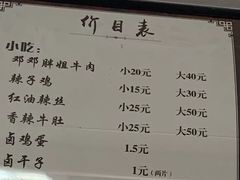 价目表
小吃:
邓邓胖姐牛肉 小20元 大40元
辣子鸡 小15元 大30元
红油辣丝 小25元 大50元
香辣牛肚 小25元 大50元
卤鸡蛋 1.5元
卤干子 1元(两片)